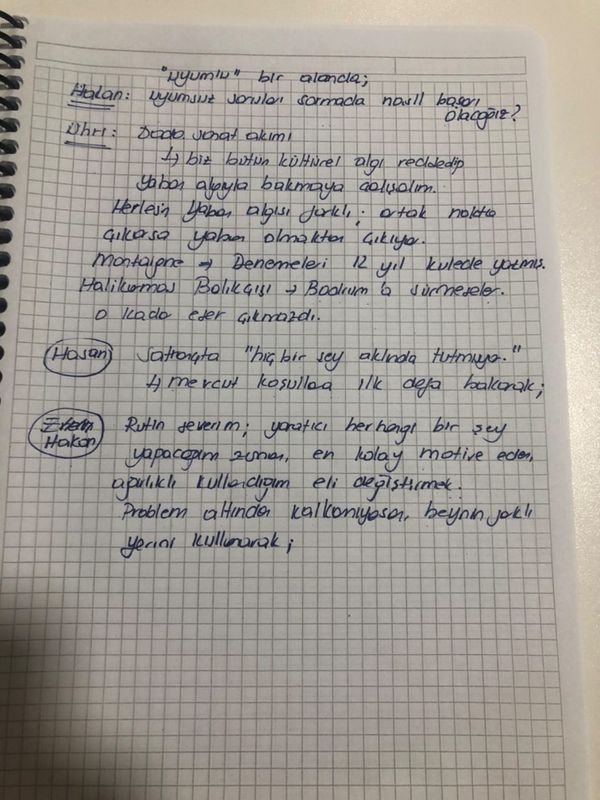 "uyumlu" bir alanda;
Hakan: uyumsuz soruları sormada nasıl başarı
olacağız?
Ühri: Dada sanat akımı
↳ biz bütün kültürel algı reddedip
yaban algıyla bakmaya çalışalım.
Herkesin yaban algısı farklı; ortak nokta
çıkarsa yaban olmaktan çıkıyor.
Montaigne → Denemeleri 12 yıl kulede yazmış.
Halikarnas Balıkçısı → Bodrum'a sürmeseler.
o kadar eser çıkmazdı.
Hasan Satrançta "hiç bir şey aklında tutmuyor."
↳ mevcut koşullara ilk defa bakarak;
Hakan Rutin severim; yaratıcı herhangi bir şey
yapacağım zaman, en kolay motive eden,
ağırlıklı kullandığım eli değiştirmek.
Problem altından kalkamıyorsan, beynin farklı
yerini kullanarak;